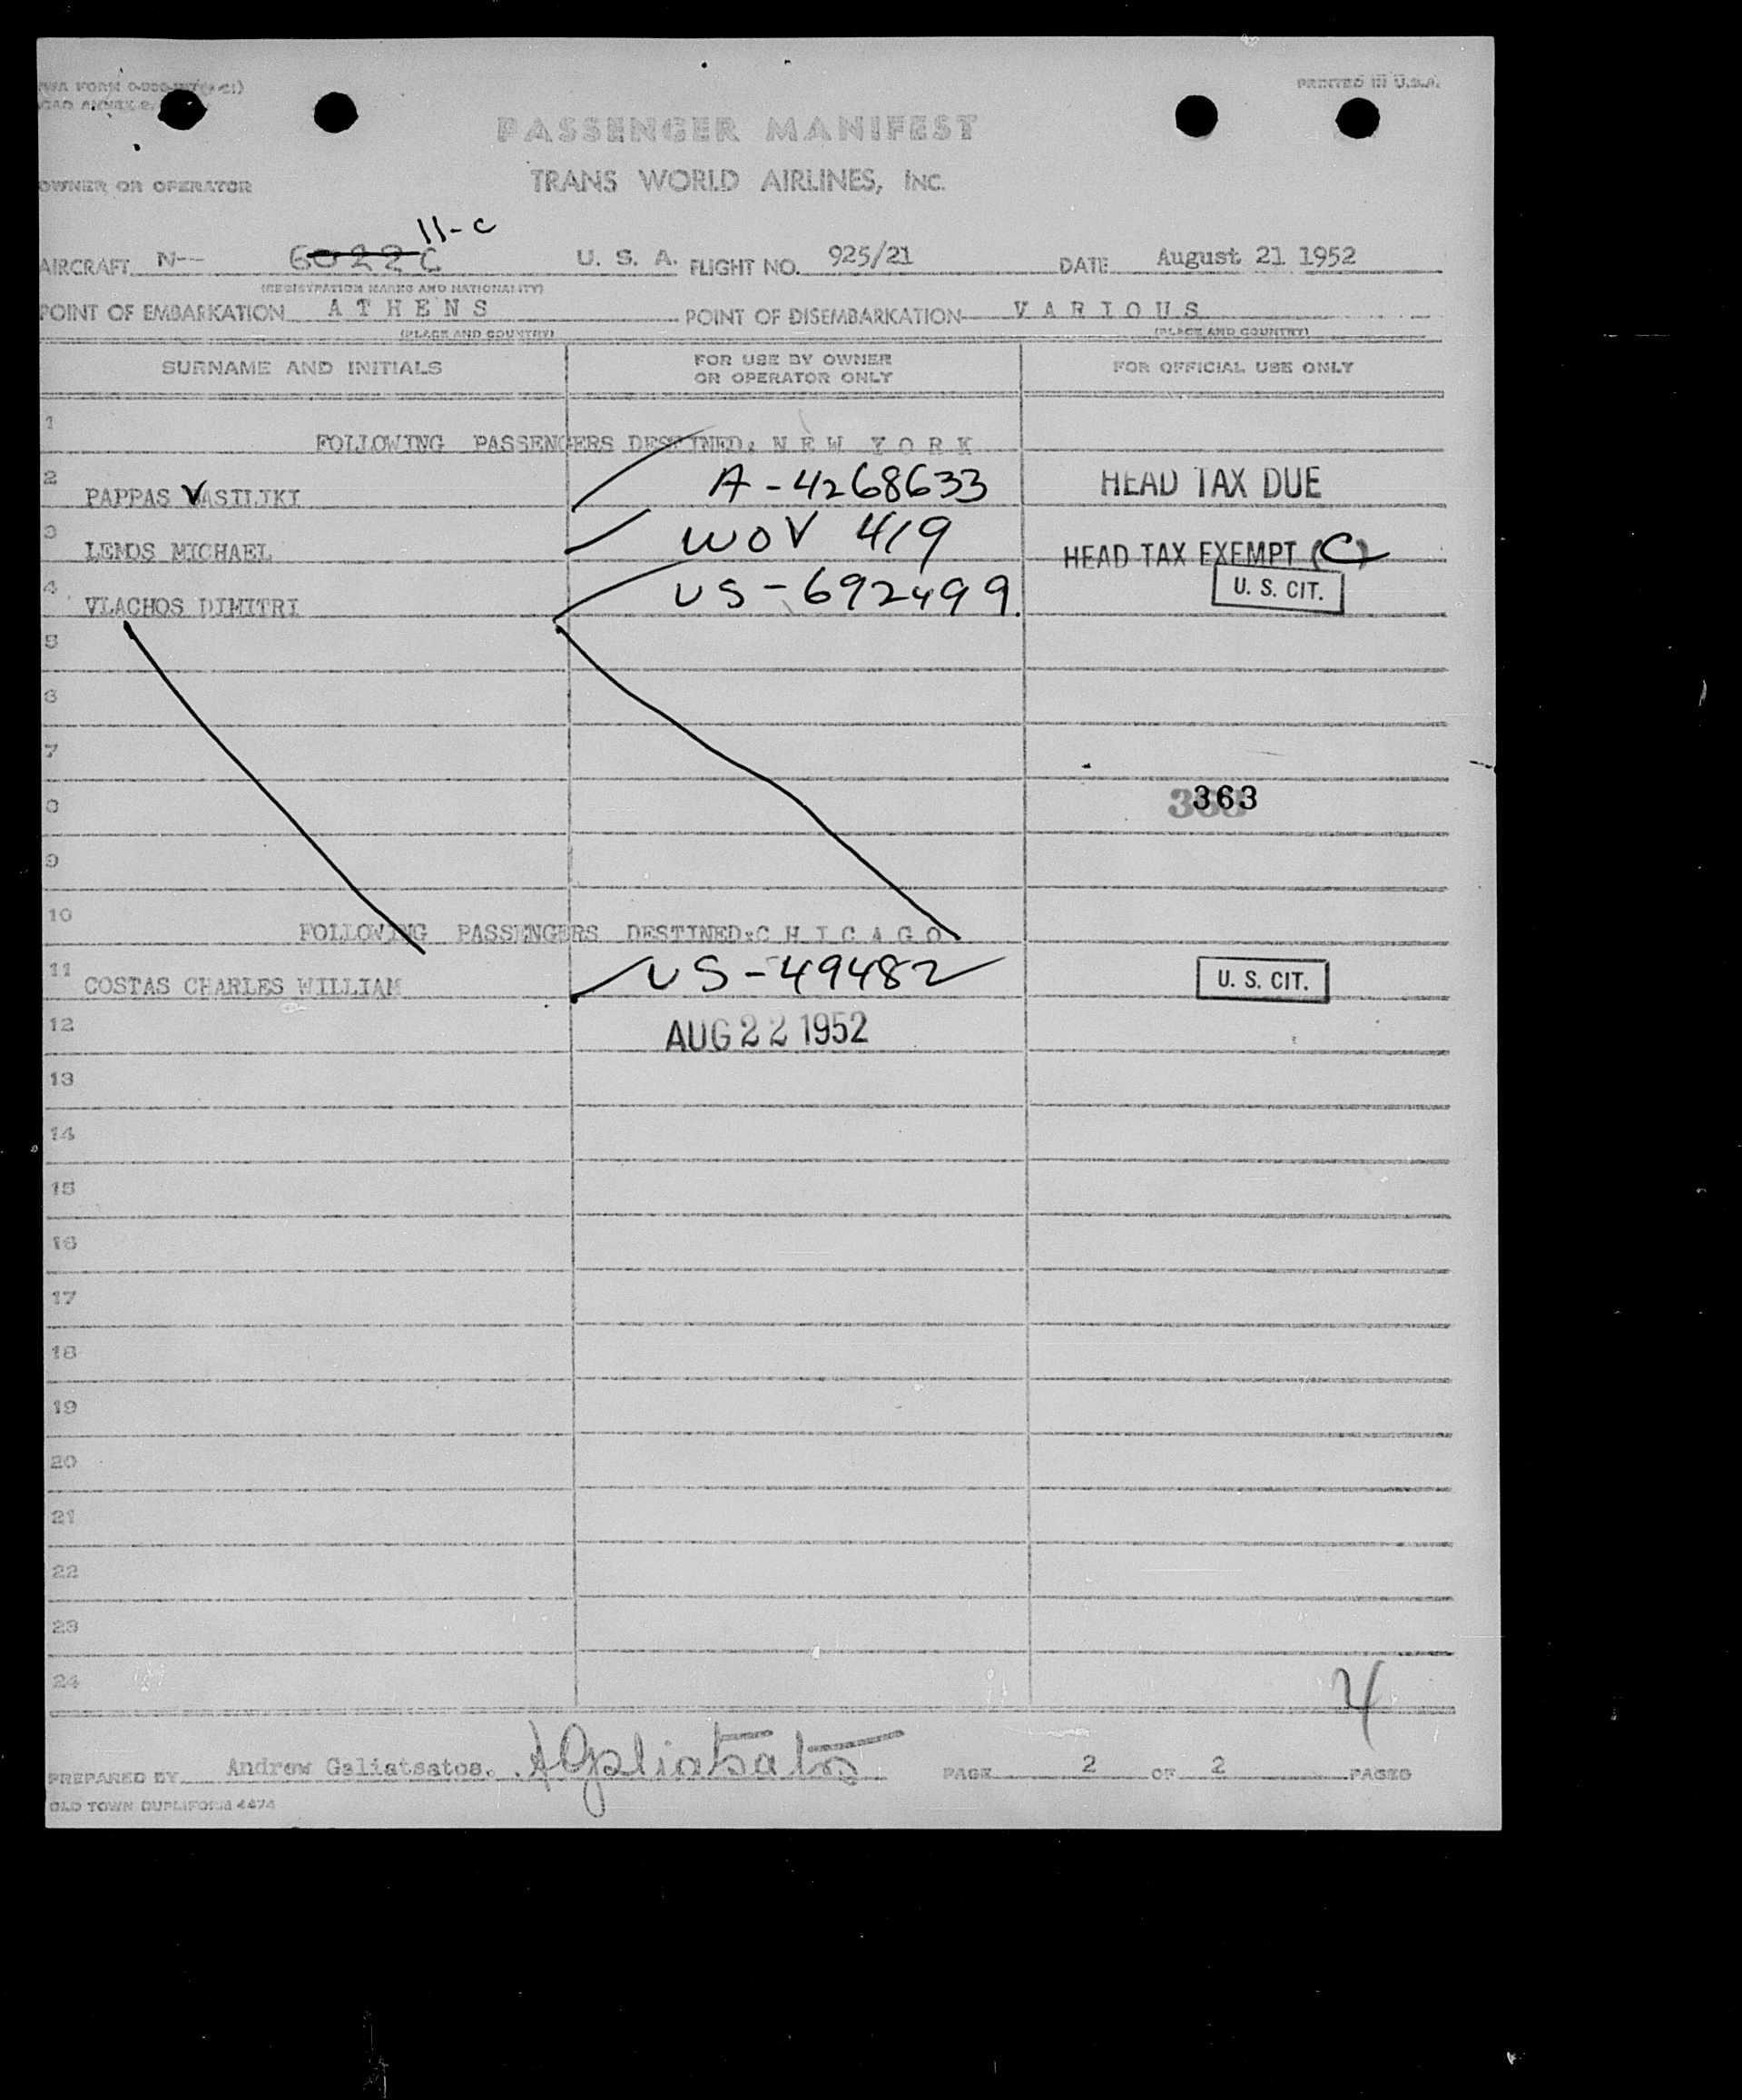 PRINTED IN U.S.A.
PASSENGER MANIFEST
OWNER OR OPERATOR TRANS WORLD AIRLINES, INC.
11-C
AIRCRAFT N-- 6022C U. S. A. FLIGHT NO. 925/21 DATE August 21 1952
(REGISTRATION MARKS AND NATIONALITY)
POINT OF EMBARKATION A T H E N S POINT OF DISEMBARKATION V A R I O U S
(PLACE AND COUNTRY) (PLACE AND COUNTRY)
SURNAME AND INITIALS FOR USE BY OWNER OR OPERATOR ONLY FOR OFFICIAL USE ONLY
1 FOLLOWING PASSENGERS DESTINED: N E W Y O R K
2 PAPPAS VASILIKI A-4268633 HEAD TAX DUE
3 LEMOS MICHAEL WOV 419 HEAD TAX EXEMPT (C)
4 VLACHOS DIMITRI US-692499. U. S. CIT.
5
6
7
8 363
9
10 FOLLOWING PASSENGERS DESTINED:C H I C A G O
11 COSTAS CHARLES WILLIAM US-49482 U. S. CIT.
12 AUG 22 1952
13
14
15
16
17
18
19
20
21
22
23
24
4
PREPARED BY Andrew Galiatsatos. AGaliatsatos PAGE 2 OF 2 PAGES
OLD TOWN DUPLIFORM 4474